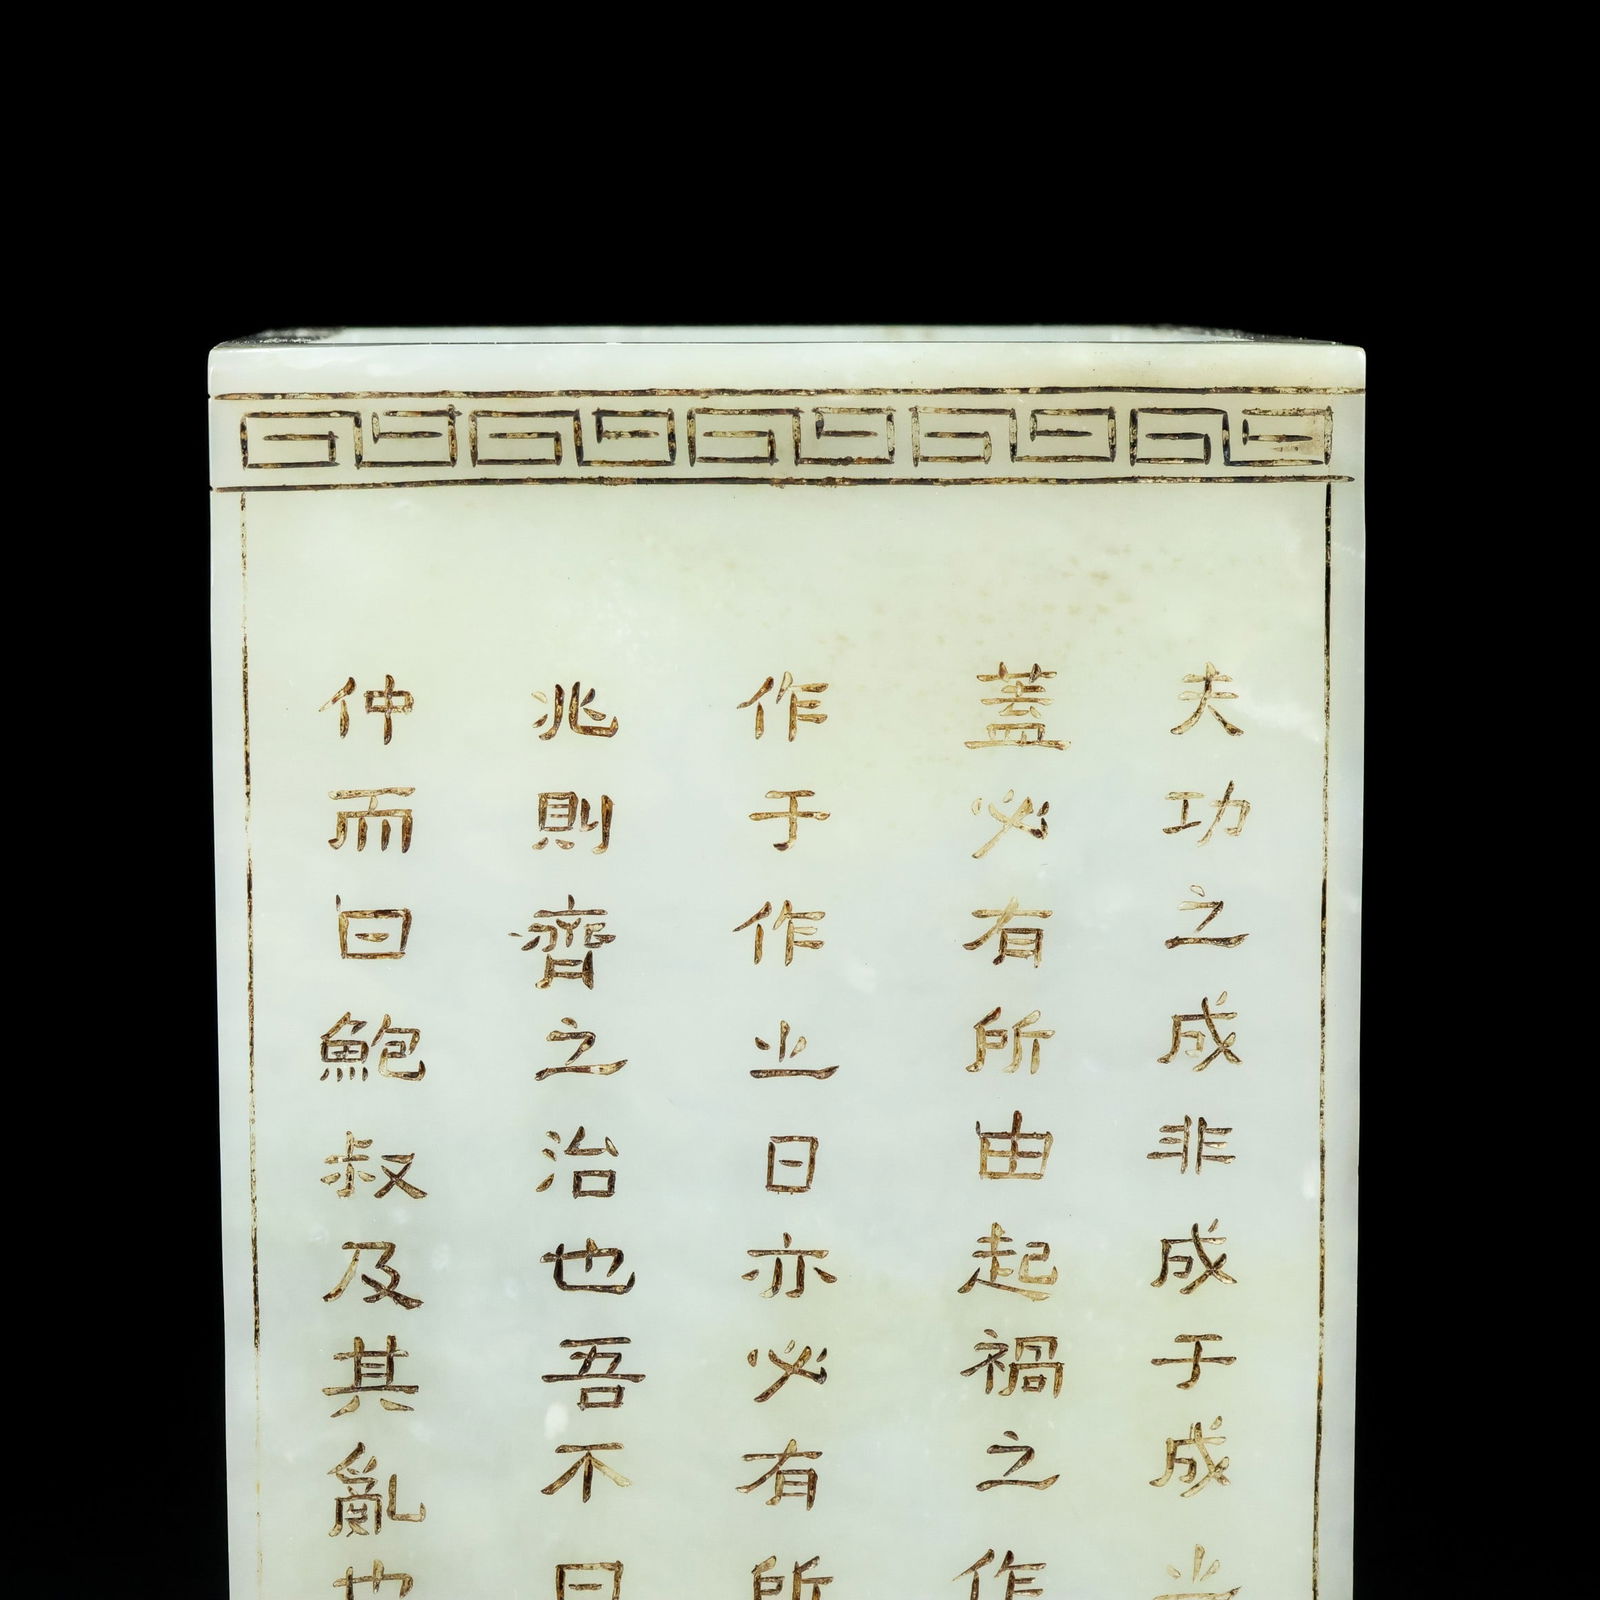 夫功之成非成于成㞢
蓋必有所由起禍之作
作于作㞢日亦必有所
兆則齊之治也吾不曰
仲而曰鮑叔及其亂也